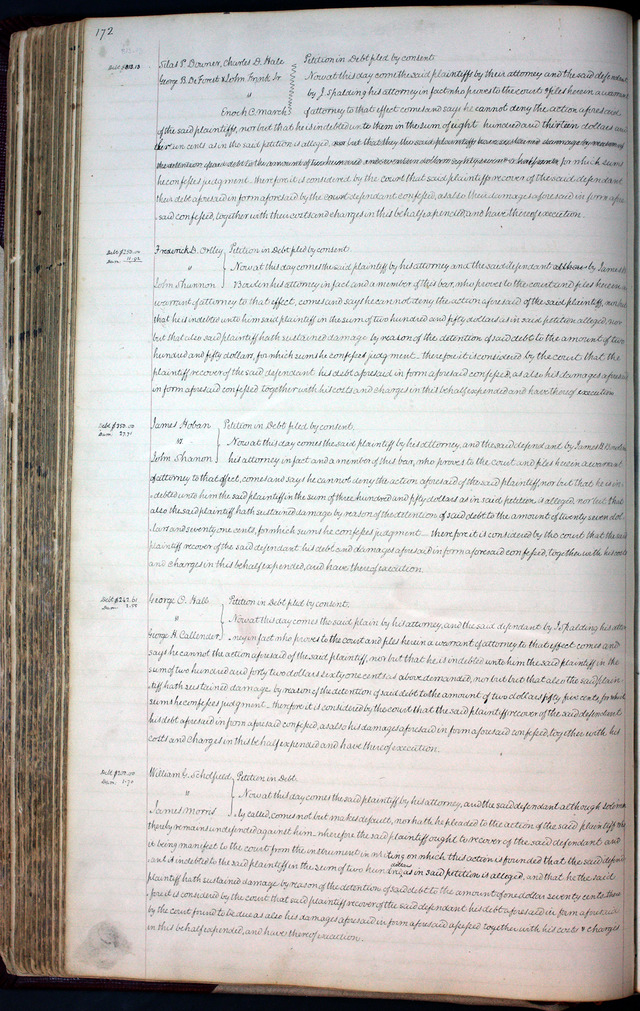 172
Debt $813.13
Silas P. Downer, Charles D. Hale } Petition in Debt filed by consent
George B. DeForst & John Frink Jr. } Now at this day come the said plaintiffs by their attorney and the said defendant
" } by J. Spalding his attorney in fact who proves to the court & files herein a warrant
Enoch C. March } of attorney to that effect comes and says he cannot deny the action aforesaid
of the said plaintiffs, nor but that he is indebted unto them in the sum of eight hundred and thirteen dollars and
cents as in the said petition is alleged, nor but that they the said plaintiffs have sustained damage by reason of
the detention of said debt to the amount of two hundred and seventeen dollars eighty seven & a half cents for which sums
he confesses judgment. therefore it is considered by the court that said plaintiffs recover of the said defendant
their debt aforesaid in form aforesaid by the defendant confessed, as also their damages aforesaid in form afore
said confessed, together with their costs and charges in this behalf expended, and have thereof execution.
Debt $250.00
Dam.
Frederick D. Ortley } Petition in Debt filed by consent.
" } Now at this day comes the said plaintiff by his attorney and the said defendant by James B.
John Shannon } Bowlin his attorney in fact and a member of this bar, who proves to the court and files herein a
warrant of attorney to that effect, comes and says he cannot deny the action aforesaid of the said plaintiff, nor but
that he is indebted unto him said plaintiff in the sum of two hundred and fifty dollars as in said petition alleged, nor
but that also said plaintiff hath sustained damage by reason of the detention of said debt to the amount of two
hundred and fifty dollars, for which sums he confesses judgment. therefore it is considered by the court that the
plaintiff recover of the said defendant his debt aforesaid in form aforesaid confessed, as also his damages aforesaid
in form aforesaid confessed together with his costs and charges in this behalf expended and have thereof execution
Debt $350.00
Dam. 27.71
James Hoban } Petition in Debt filed by consent.
vs } Now at this day comes the said plaintiff by his attorney, and the said defendant by James B. Bowlin
John Shanon } his attorney in fact and a member of this bar, who proves to the court and files herein a warrant
of attorney to that effect, comes and says he cannot deny the action aforesaid of the said plaintiff, nor but that he is in-
debted unto him the said plaintiff in the sum of three hundred and fifty dollars as in said petition is alleged, nor but that
also the said plaintiff hath sustained damage by reason of the detention of said debt to the amount of twenty seven dol-
lars and seventy one cents, for which sums he confesses judgment — therefore it is considered by the court that the said
plaintiff recover of the said defendant his debt and damages aforesaid in form aforesaid confessed, together with his costs
and charges in this behalf expended, and have thereof execution.
Debt $242.61
Dam. 2.55
George C. Hall } Petition in Debt filed by consent,
" } Now at this day comes the said plain by his attorney, and the said defendant by J. Spalding his attor
George H. Callender } ney in fact who proves to the court and files herein a warrant of attorney to that effect comes and
says he cannot the action aforesaid of the said plaintiff, nor but that he is indebted unto him the said plaintiff in the
sum of two hundred and forty two dollars sixty one cents as above demanded, nor but but that also the said plain-
tiff hath sustained damage by reason of the detention of said debt to the amount of two dollars fifty five cents, for which
sums he confesses judgment — therefore it is considered by the court that the said plaintiff recover of the said defendant
his debt aforesaid in form aforesaid confessed, as also his damages aforesaid in form aforesaid confessed, together with his
costs and charges in this behalf expended and have thereof execution.
Debt $200.00
Dam. 1.70
William G. Scholfield } Petition in Debt.
" } Now at this day comes the said plaintiff by his attorney, and the said defendant although solemn
James Morris } ly called, comes not but makes default, nor hath he pleaded to the action of the said plaintiff who
thereby remains undefended against him. wherefore the said plaintiff ought to recover of the said defendant and
it being manifest to the court from the instrument in writing on which this action is founded that the said defend
ant is indebted to the said plaintiff in the sum of two hundred dollars as in said petition is alleged, and that he the said
plaintiff hath sustained damage by reason of the detention of said debt to the amount of one dollar seventy cents, there
fore it is considered by the court that said plaintiff recover of the said defendant his debt aforesaid in form aforesaid
by the court found to be due as also his damages aforesaid in form aforesaid assessed together with his costs & charges
in this behalf expended, and have thereof execution.